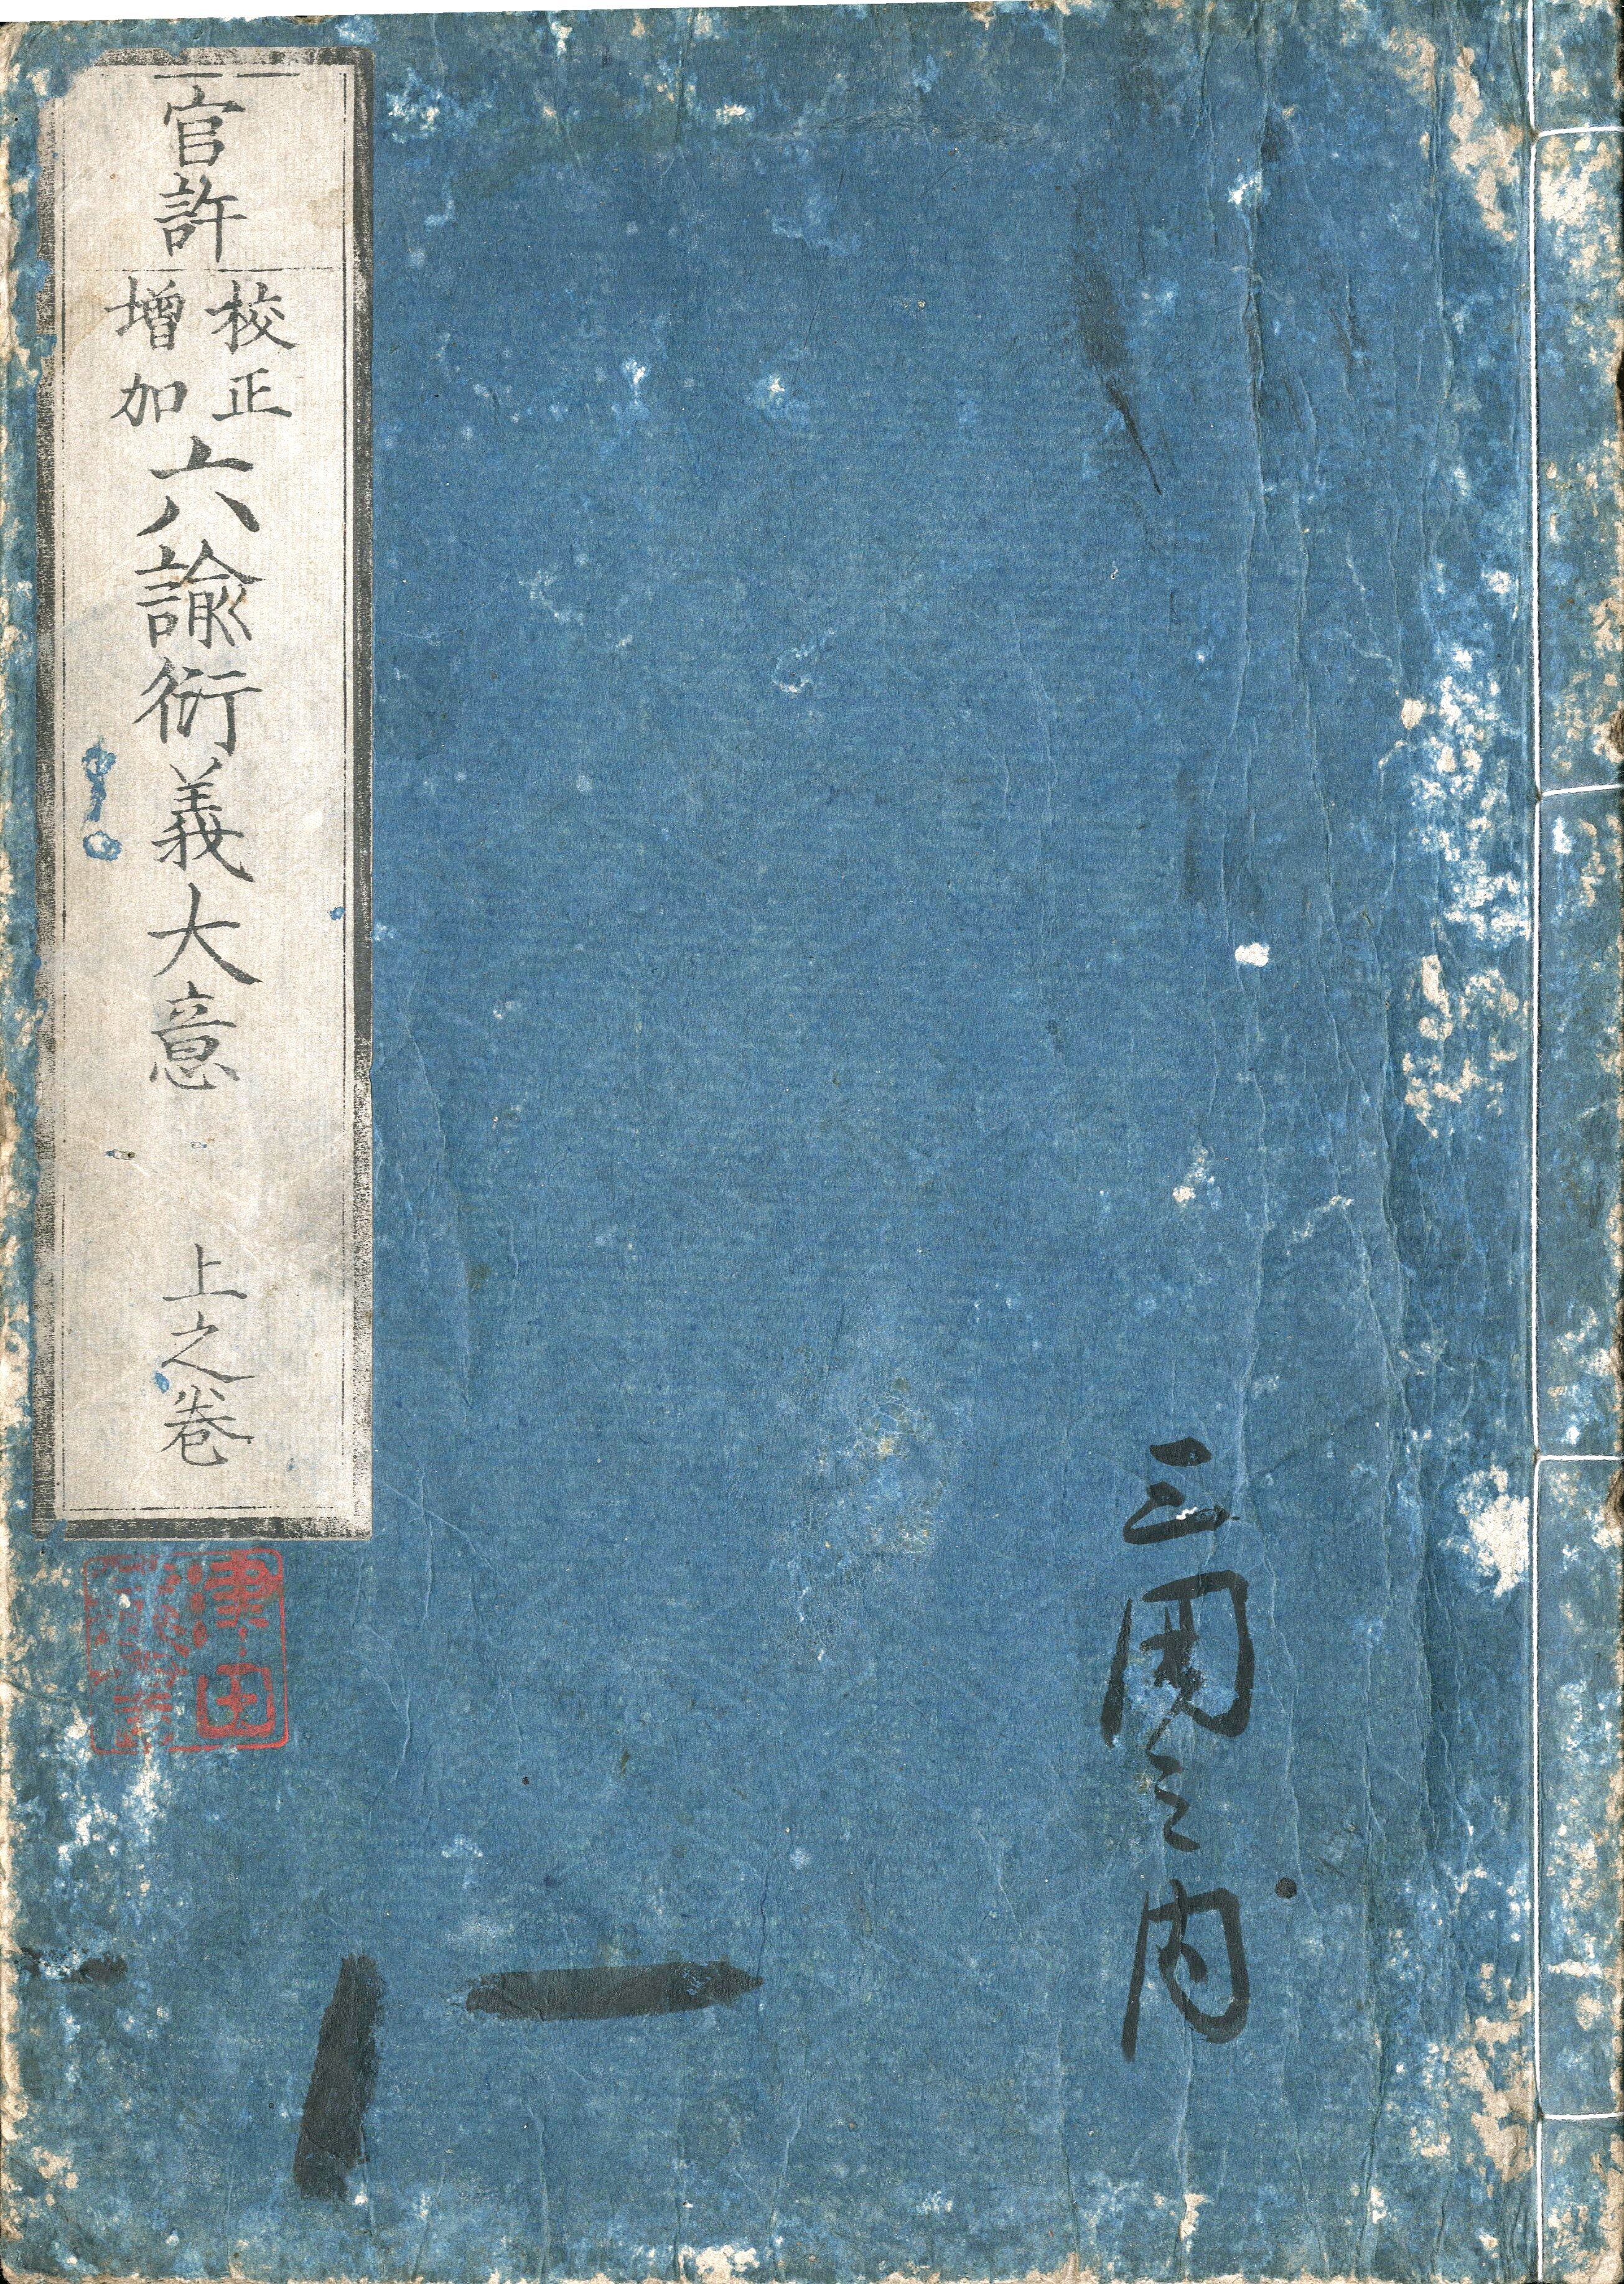 官許
校正
增加
六諭衍義大意
上之卷
三冊之内
津田